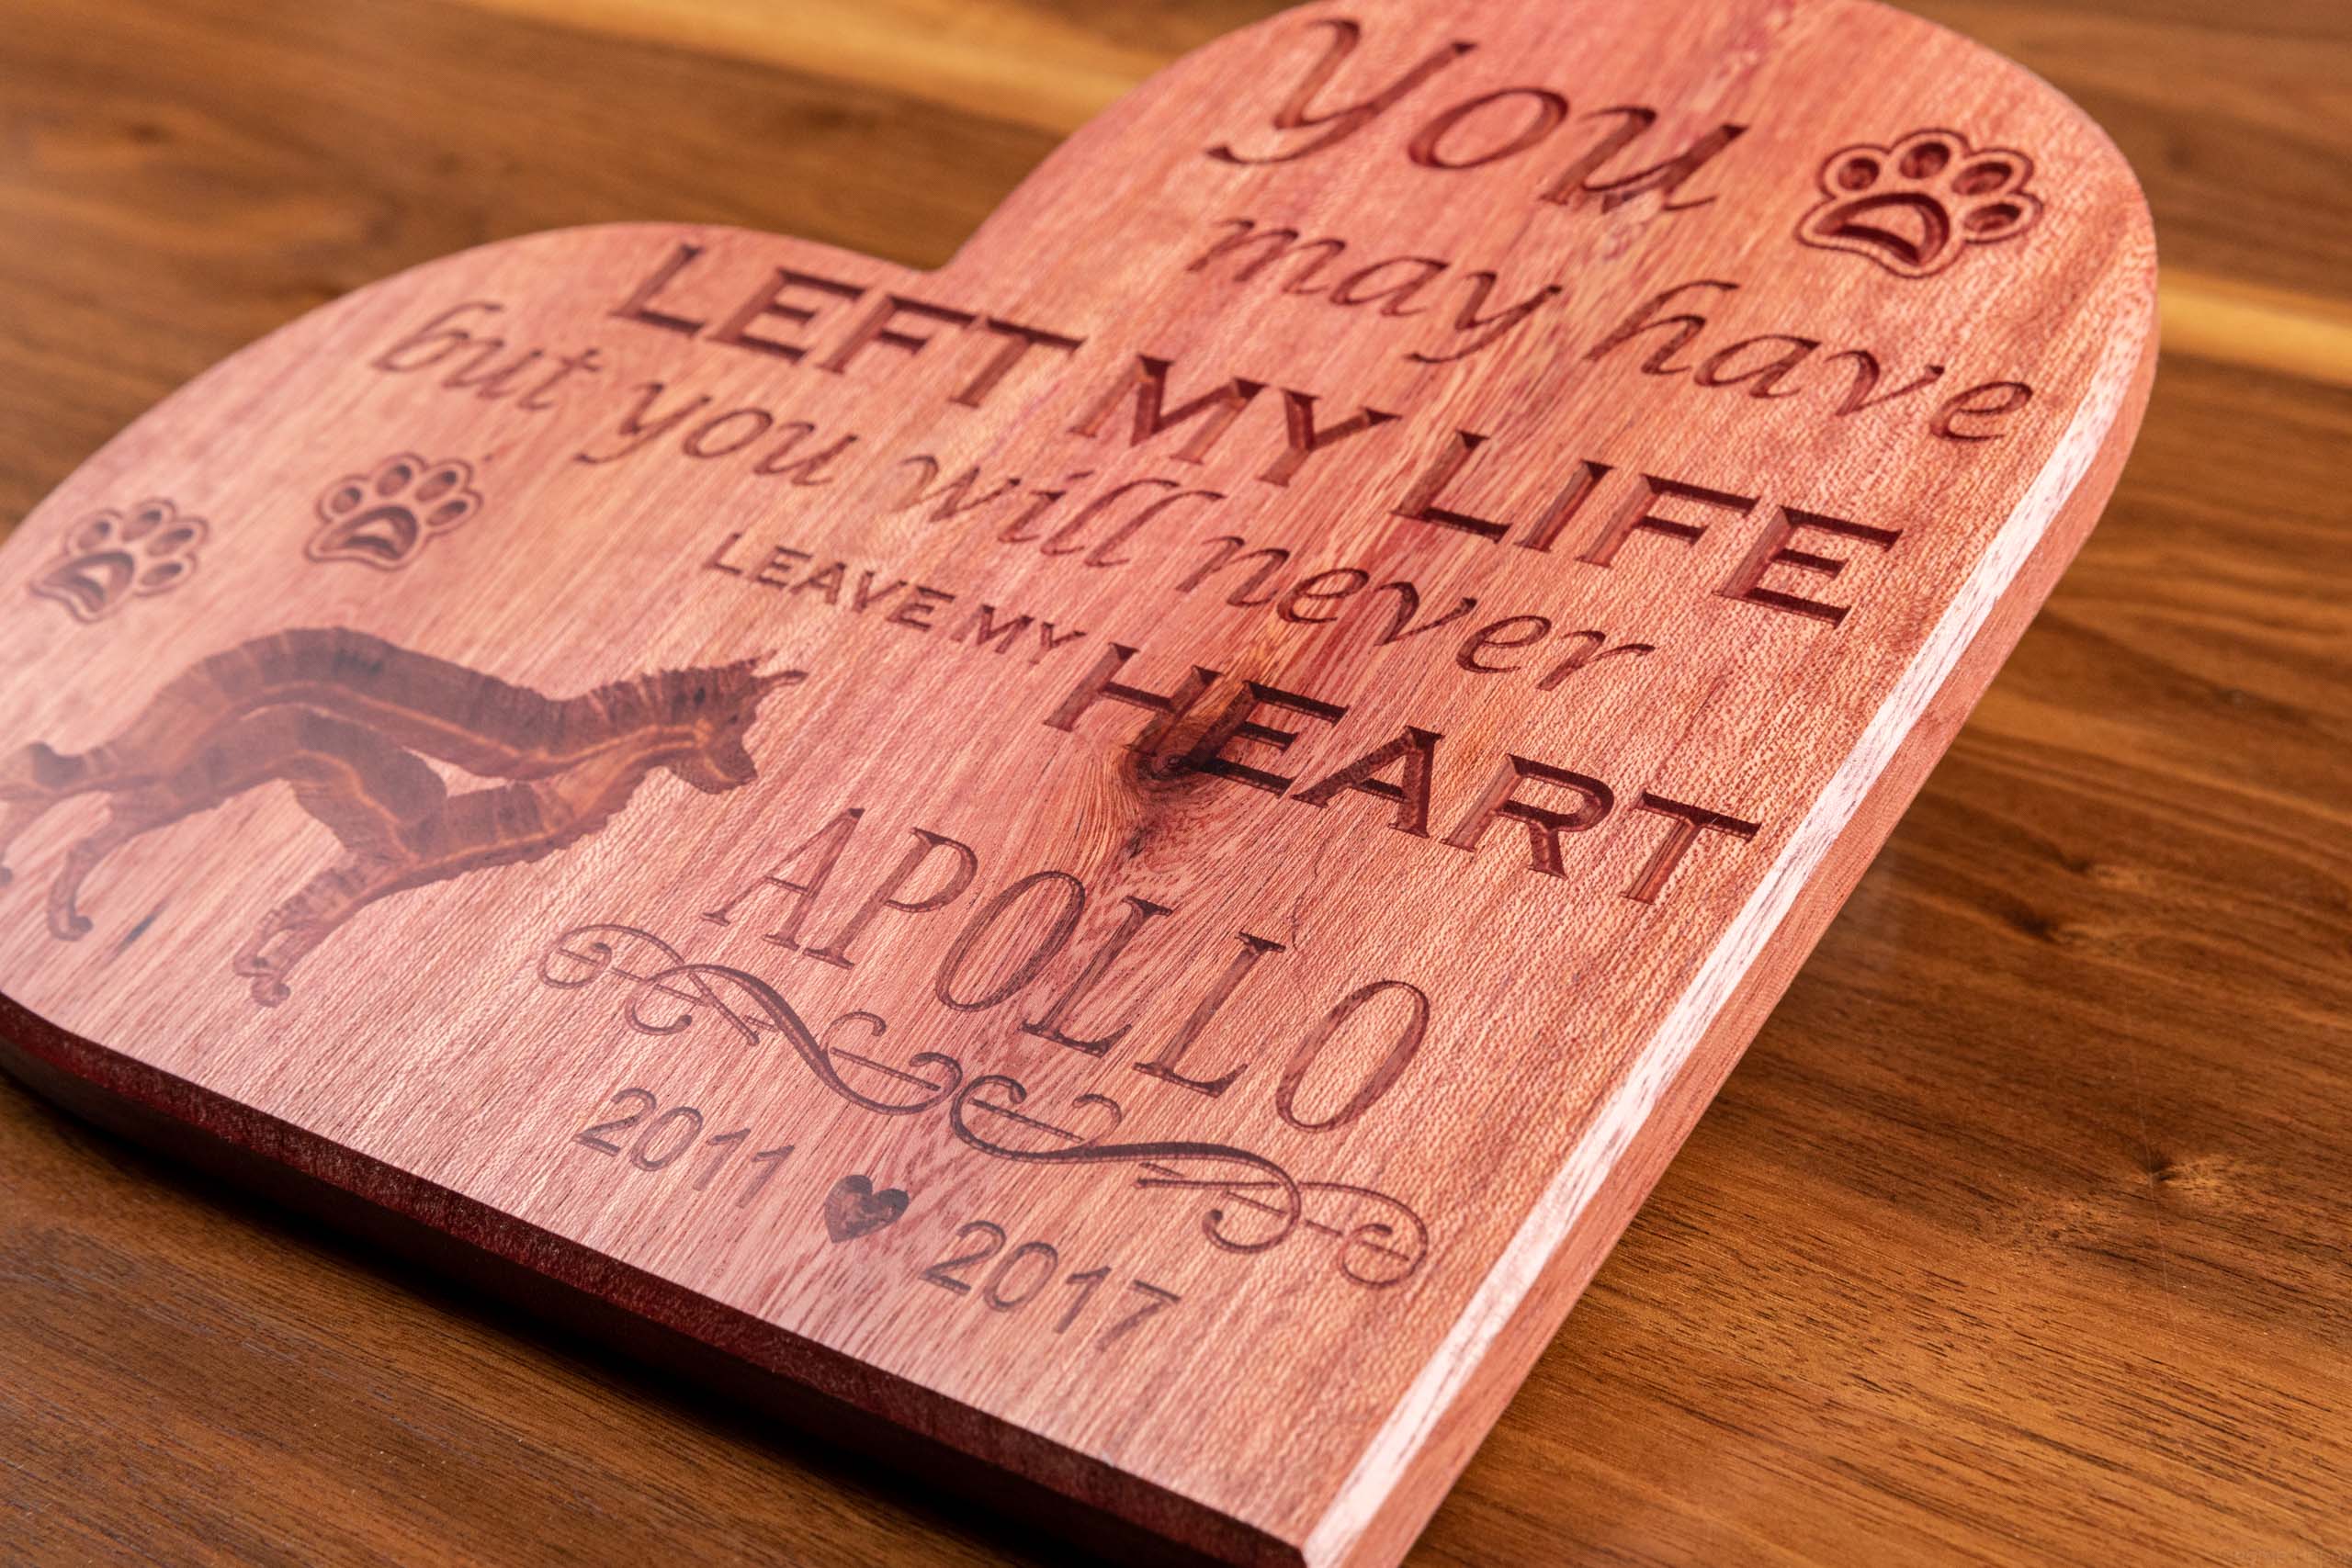 You
may have
LEFT MY LIFE
but you will never
LEAVE MY HEART
APOLLO
2011 2017